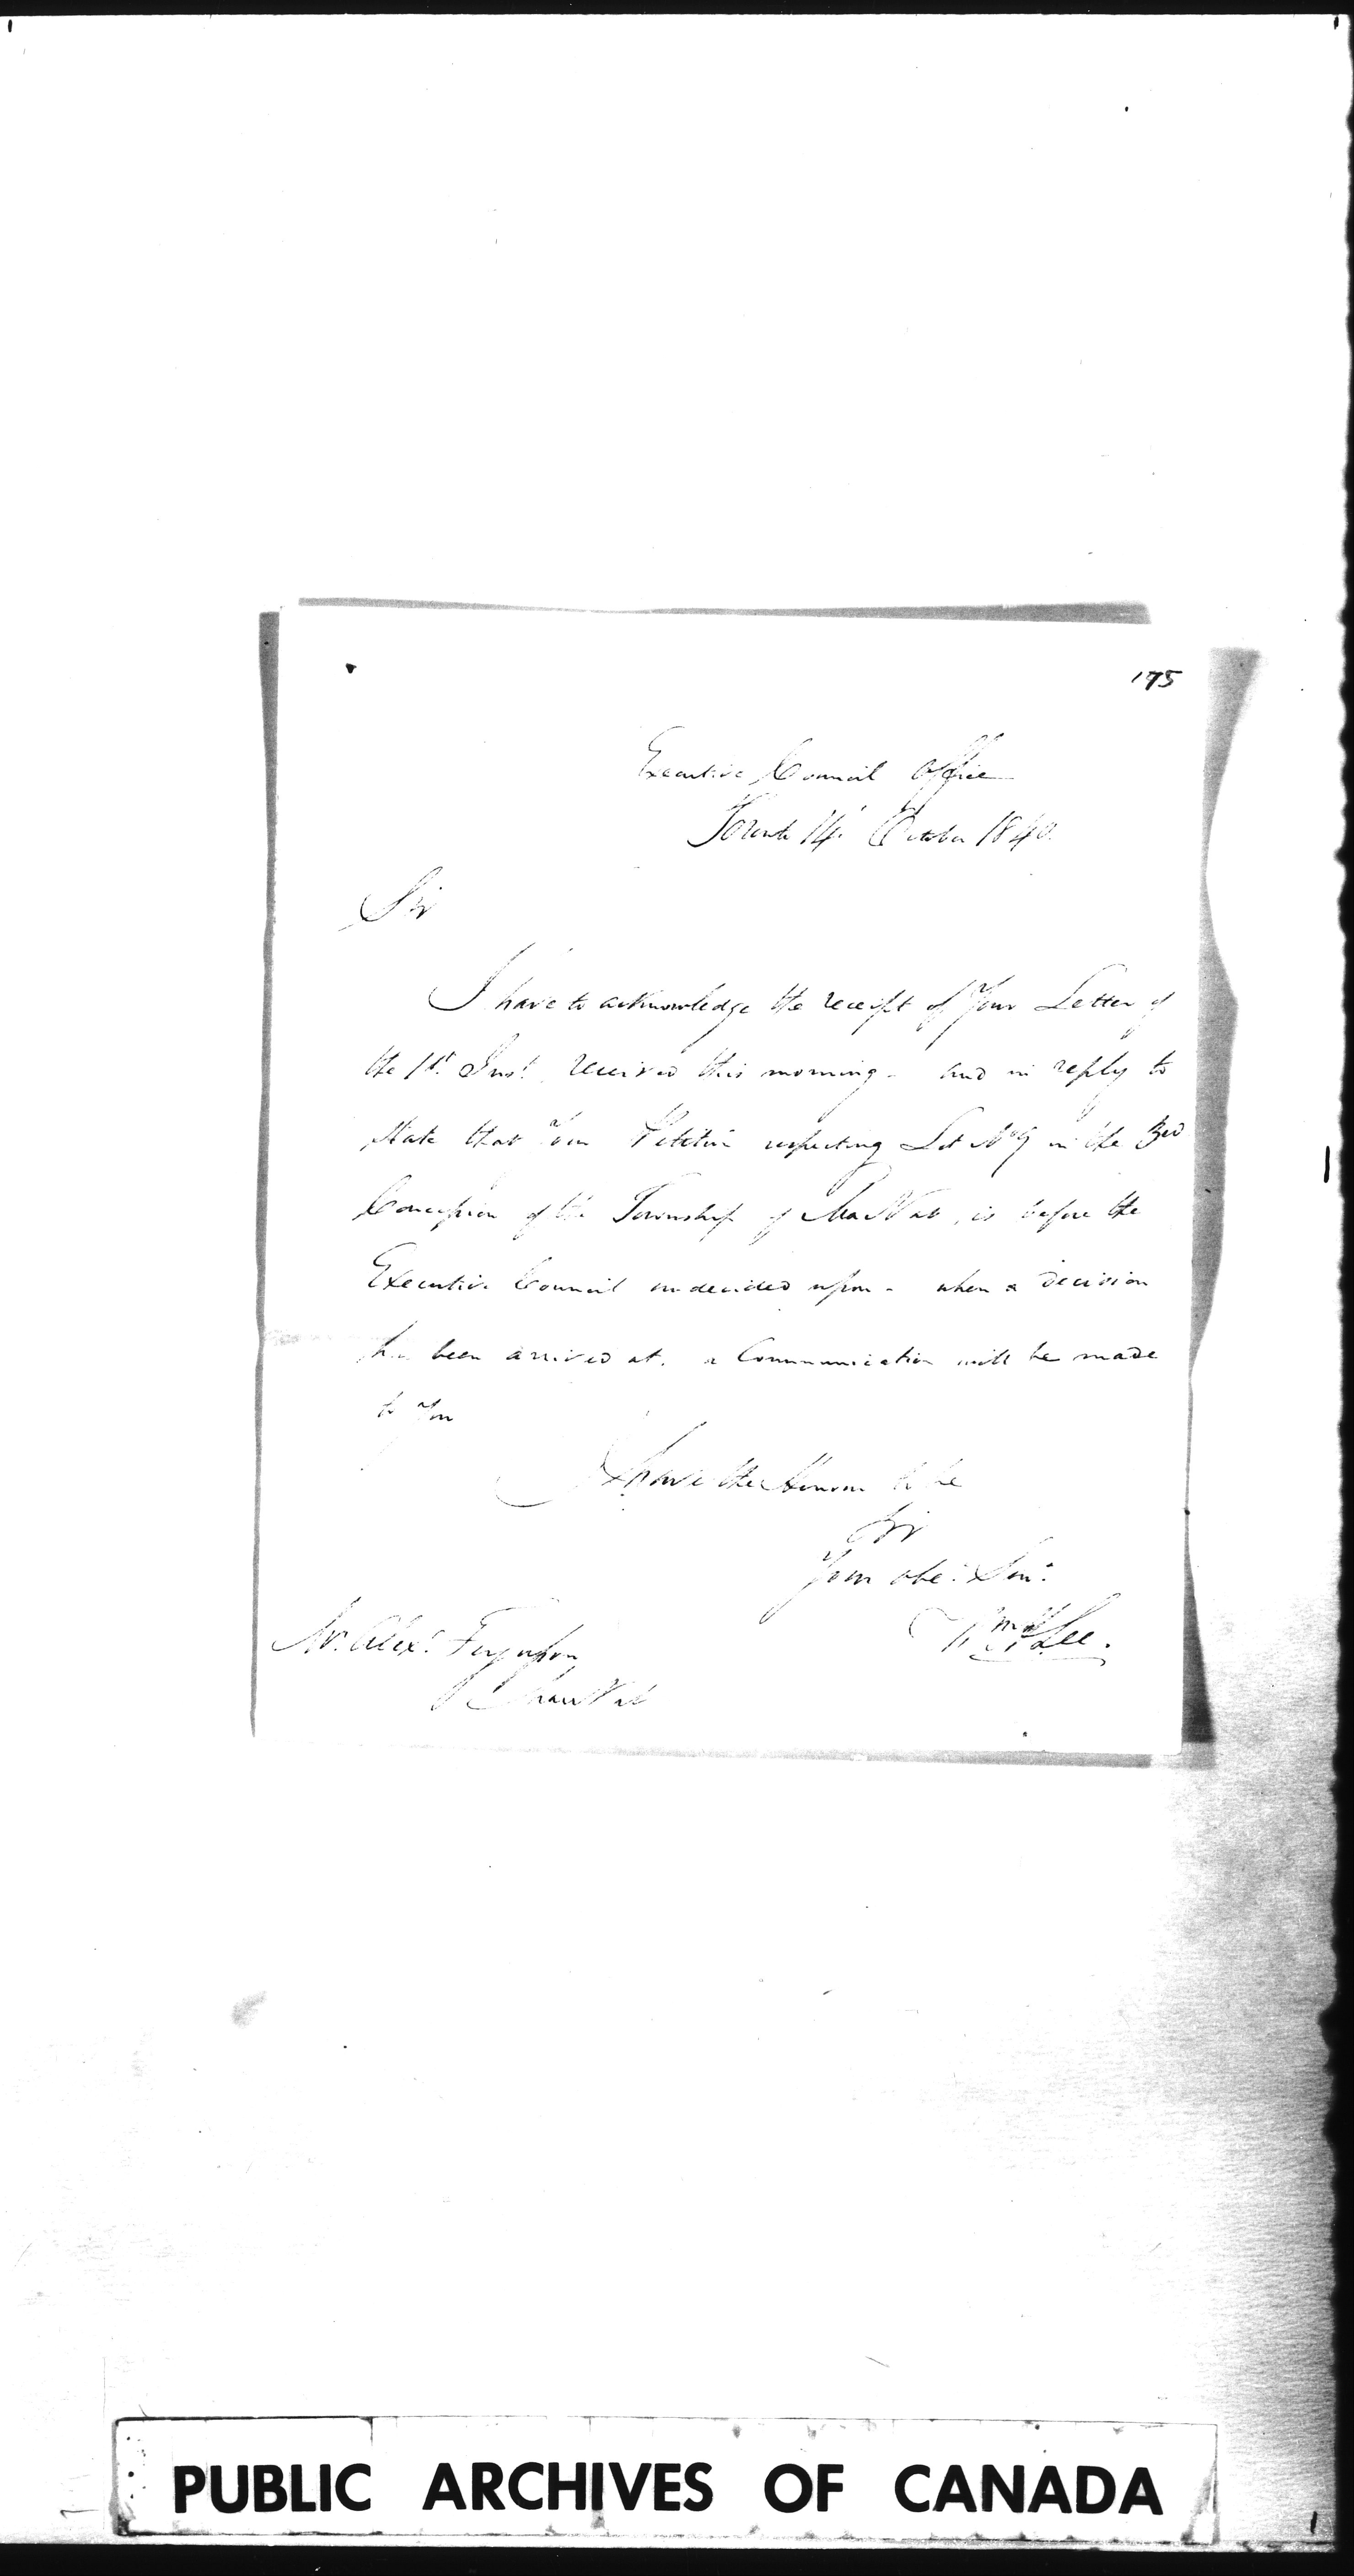 175
Executive Council Office
Toronto 14. October 1840.
Sir
I have to acknowledge the receipt of Your Letter of
the 1st. Inst. received this morning - and in reply to
State that Your Petition respecting Lot No 9 in the 3rd
Concession of the Township of MacNab, is before the
Executive Council undecided upon - when a decision
has been arrived at, a Communication will be made
to You
I have the Honour to be
Sir
Your obt. Sert.
Wm H Lee.
Mr. Alexr. Ferguson
MacNab
PUBLIC ARCHIVES OF CANADA